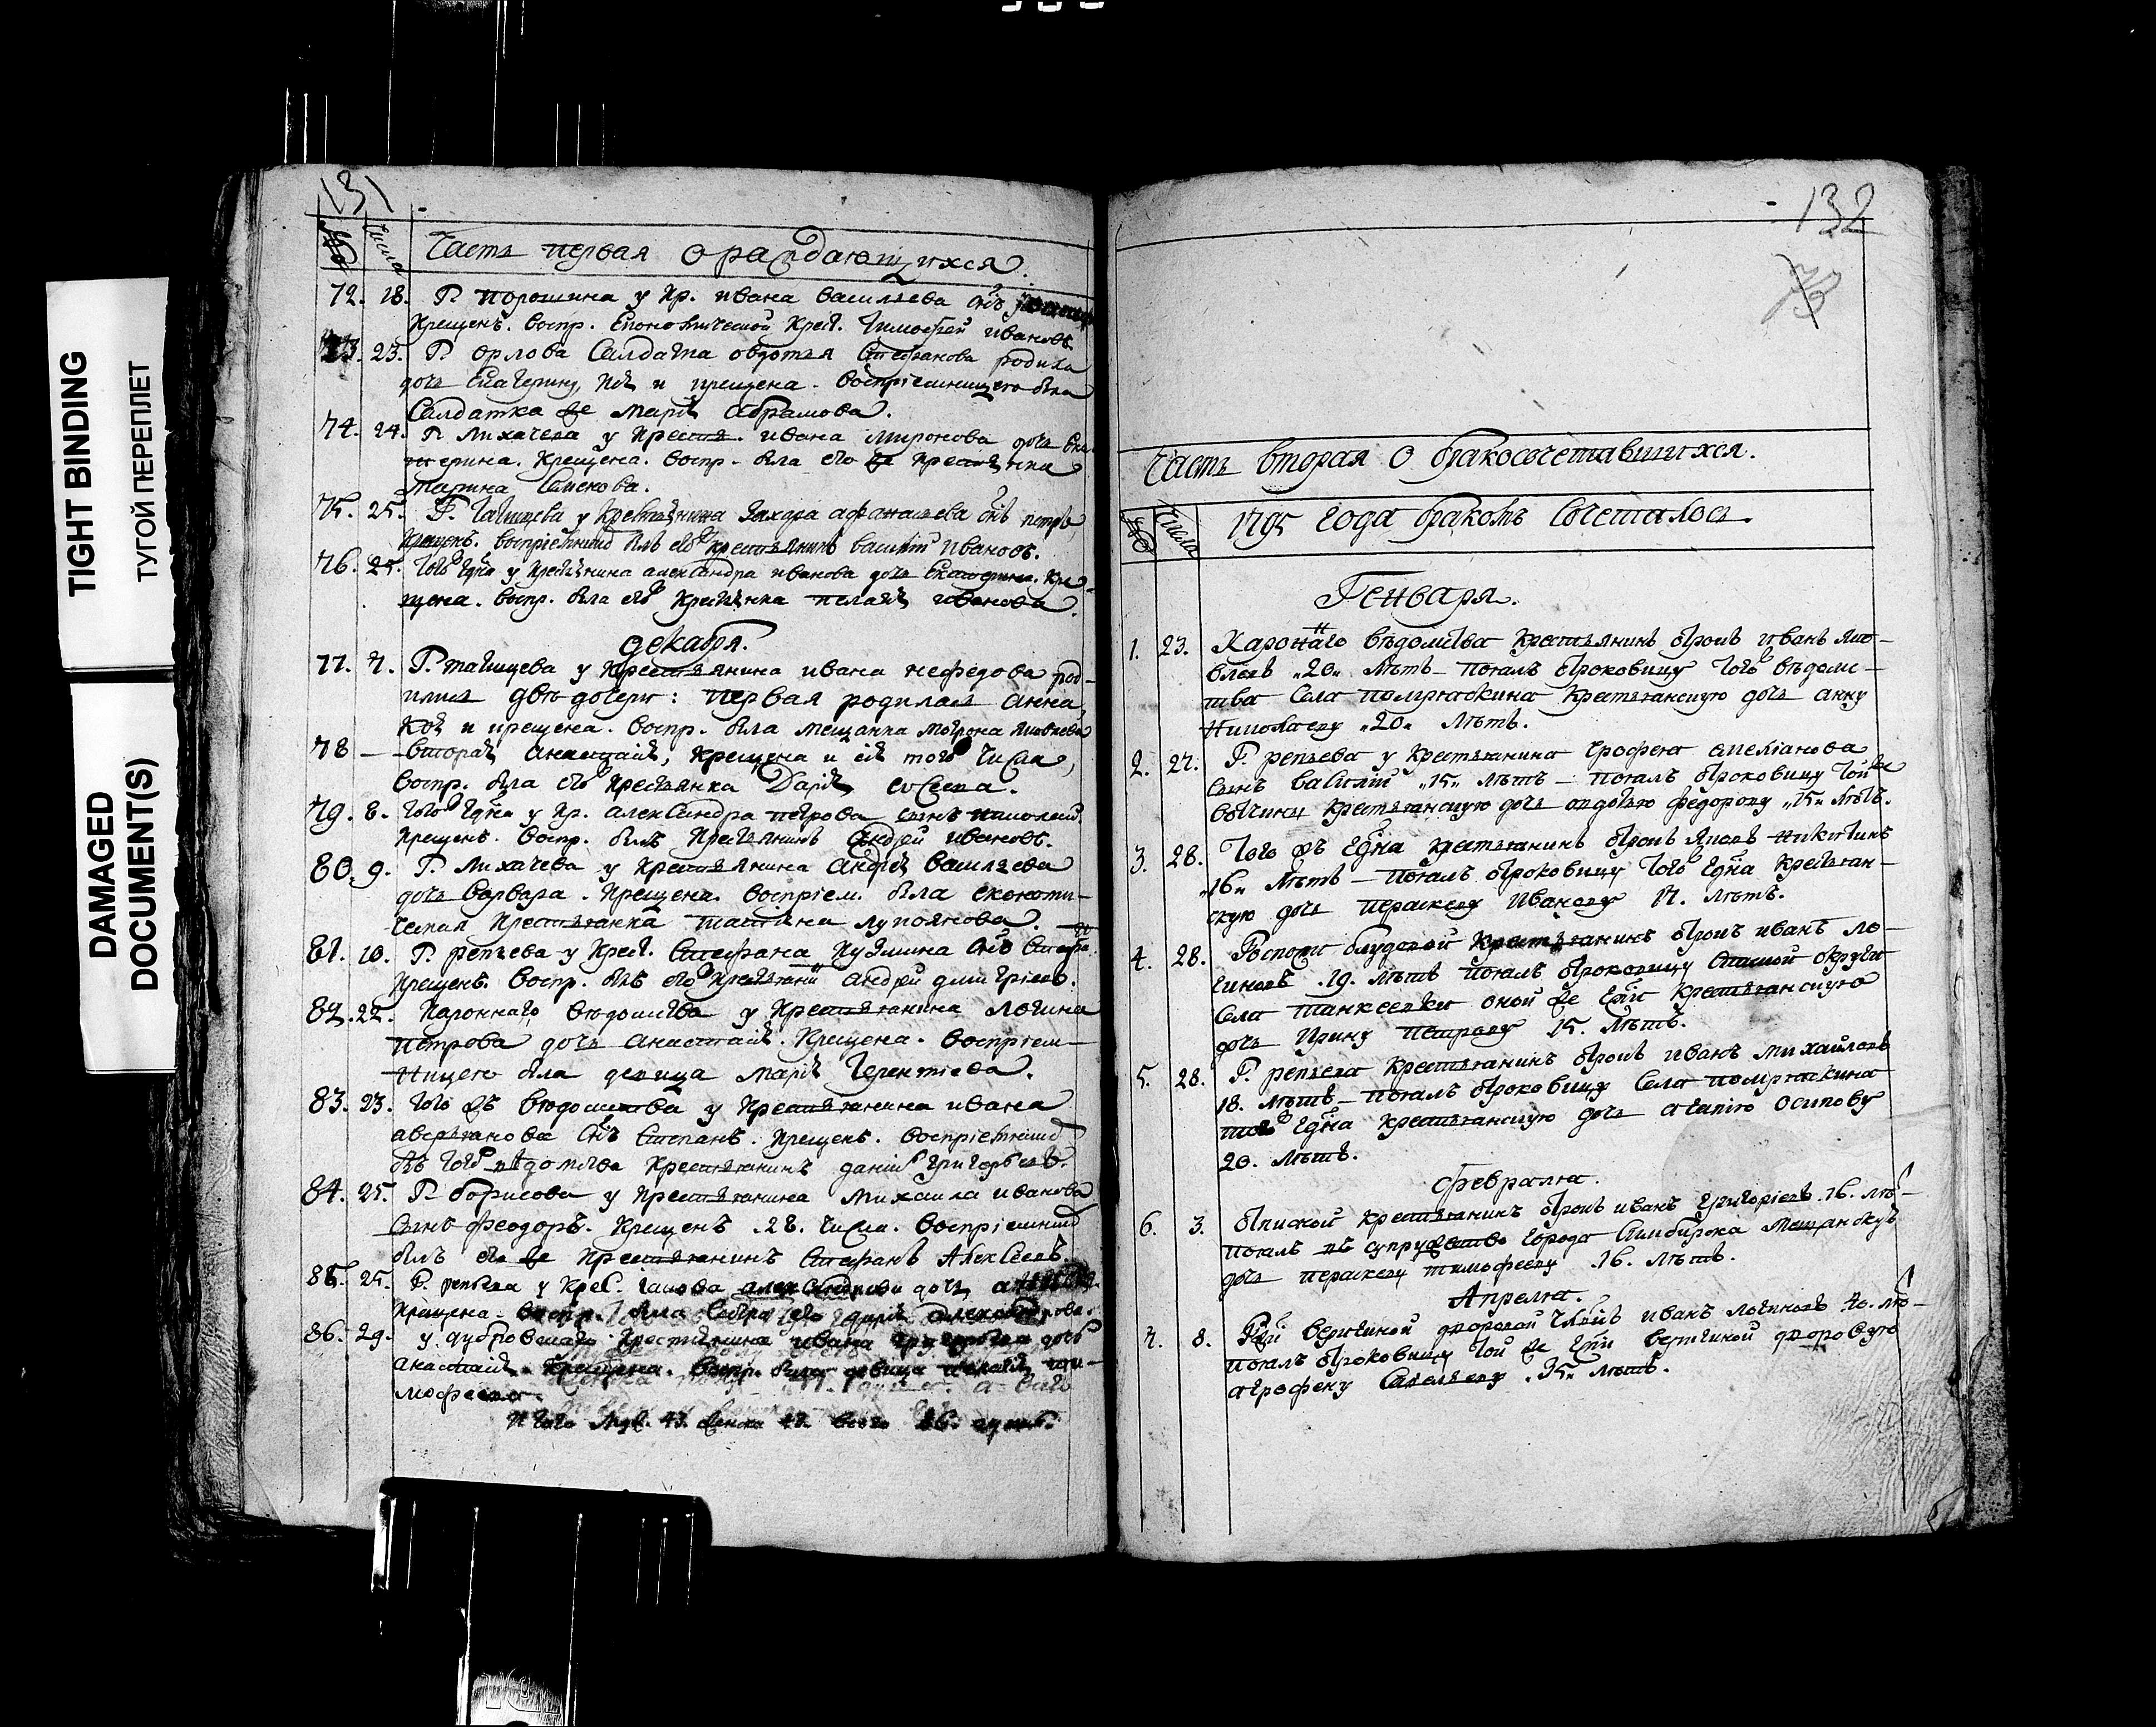 TIGHT BINDING
ТУГОЙ ПЕРЕПЛЕТ
DAMAGED
DOCUMENT(S)
131
№ числа Часть первая о раждающихся.
72. 18. Г. порошина у кр. ивана васильева снъ
крещенъ. воспр. Економической крест. тимофей ивановъ.
73. 23. Г. орлова салдатка овдотья стефанова родила
дочь Екатерину, коя и крещена. воспріемницею была
салдатка же марія абрамова.
74. 24. Г. лихачева у крестья. ивана миронова дочь ека-
терина. крещена. воспр. была его же крестьянка
марина семенова.
75. 25. Г. татищева у крестьянина захара афанасьева снъ петръ,
крещенъ. воспріемникъ былъ его крестьянинъ василій ивановъ.
76. 25. того гдна у крестьянина александра иванова дочь екатерина. кре-
щена. воспр. была его крестьянка пелагея иванова.
декабря.
77. 7. Г. татищева у крестьянина ивана нефедова род-
ились двѣ дочери: первая родилась анна,
коя и крещена. воспр. была мещанка матрона яковлева
78 — вторая анастасія, крещена и сія того числа,
воспр. была его крестьянка дарья евсеева.
79. 8. того гдна у кр. александра петрова сынъ николай.
крещенъ. воспр. былъ крестьянинъ андрей ивановъ.
80. 9. Г. лихачева у крестьянина андрея васильева
дочь варвара. крещена. воспріем. была економи-
ческая крестьянка татьяна лукоянова.
81. 10. Г. репьева у крест. стефана кузмина снъ стефа-
крещенъ. воспр. былъ его крестьянинъ андрей дмитріевъ.
82. 22. кароннаго вѣдомства у крестьянина логина
петрова дочь анастасія. крещена. воспріем-
ницею была девица марія терентіева.
83. 23. того жъ вѣдомства у крестьянина ивана
аверьянова снъ степанъ. крещенъ. воспріемникъ
былъ того вѣдомства крестьянинъ данилъ григорьевъ.
84. 25. Г. борисова у крестьянина михаила иванова
сынъ феодоръ. крещенъ. 28. числа. воспріемникъ
былъ его же крестьянинъ стефанъ алексеевъ.
85. 25. Г. репьева у крес. якова александрова дочь
крещена. воспр. была сестра его дарья александрова.
86. 29. у дубровскаго крестьянина ивана григорьева дочь
анастасія. крещена. воспр. была девица пелагея ти-
мофеева.
итого муж. 43. женска 43. всего 86. душъ.
132
73
Часть вторая о бракосочетавшихся.
№ числа 1795 года бракомъ сочеталось.
Генваря.
1. 23. Кароннаго вѣдомства крестьянинъ отрокъ иванъ яко-
влевъ „20„ лѣтъ — поялъ отроковицу того вѣдомс-
тва села помряскина крестьянскую дочь анну
николаеву „20„ лѣтъ.
2. 27. Г. репьева у крестьянина ерофея емеліанова
сынъ василій „15„ лѣтъ — поялъ отроковицу той же
вотчины крестьянскую дочь овдотью федорову „15„ лѣтъ.
3. 28. того жъ гдна крестьянинъ отрокъ яковъ никитинъ
„16„ лѣтъ — поялъ отроковицу того гдна крестьян-
скую дочь перасковю иванову 17. лѣтъ.
4. 28. Госпожи блудовой крестьянинъ отрокъ иванъ ло-
гиновъ 19. лѣтъ поялъ отроковицу округи
села танкеевки оной же гжи крестьянскую
дочь ирину петрову 15. лѣтъ.
5. 28. Г. репьева крестьянинъ отрокъ иванъ михайловъ
18. лѣтъ — поялъ отроковицу села помряскина
того гдна крестьянскую дочь агапію осипову
20. лѣтъ.
февраля.
6. 3. крестьянинъ отрокъ иванъ григоріевъ 16. лѣ-
поялъ въ супружество города симбирска мещанскую
дочь пераскеву тимофееву 16. лѣтъ.
Апреля.
7. 8. Гжи веригиной дворовой члвкъ иванъ логиновъ 40. лѣ-
поялъ отроковицу той же гжи веригиной дворовую
агрофену савельеву „35„ лѣтъ.